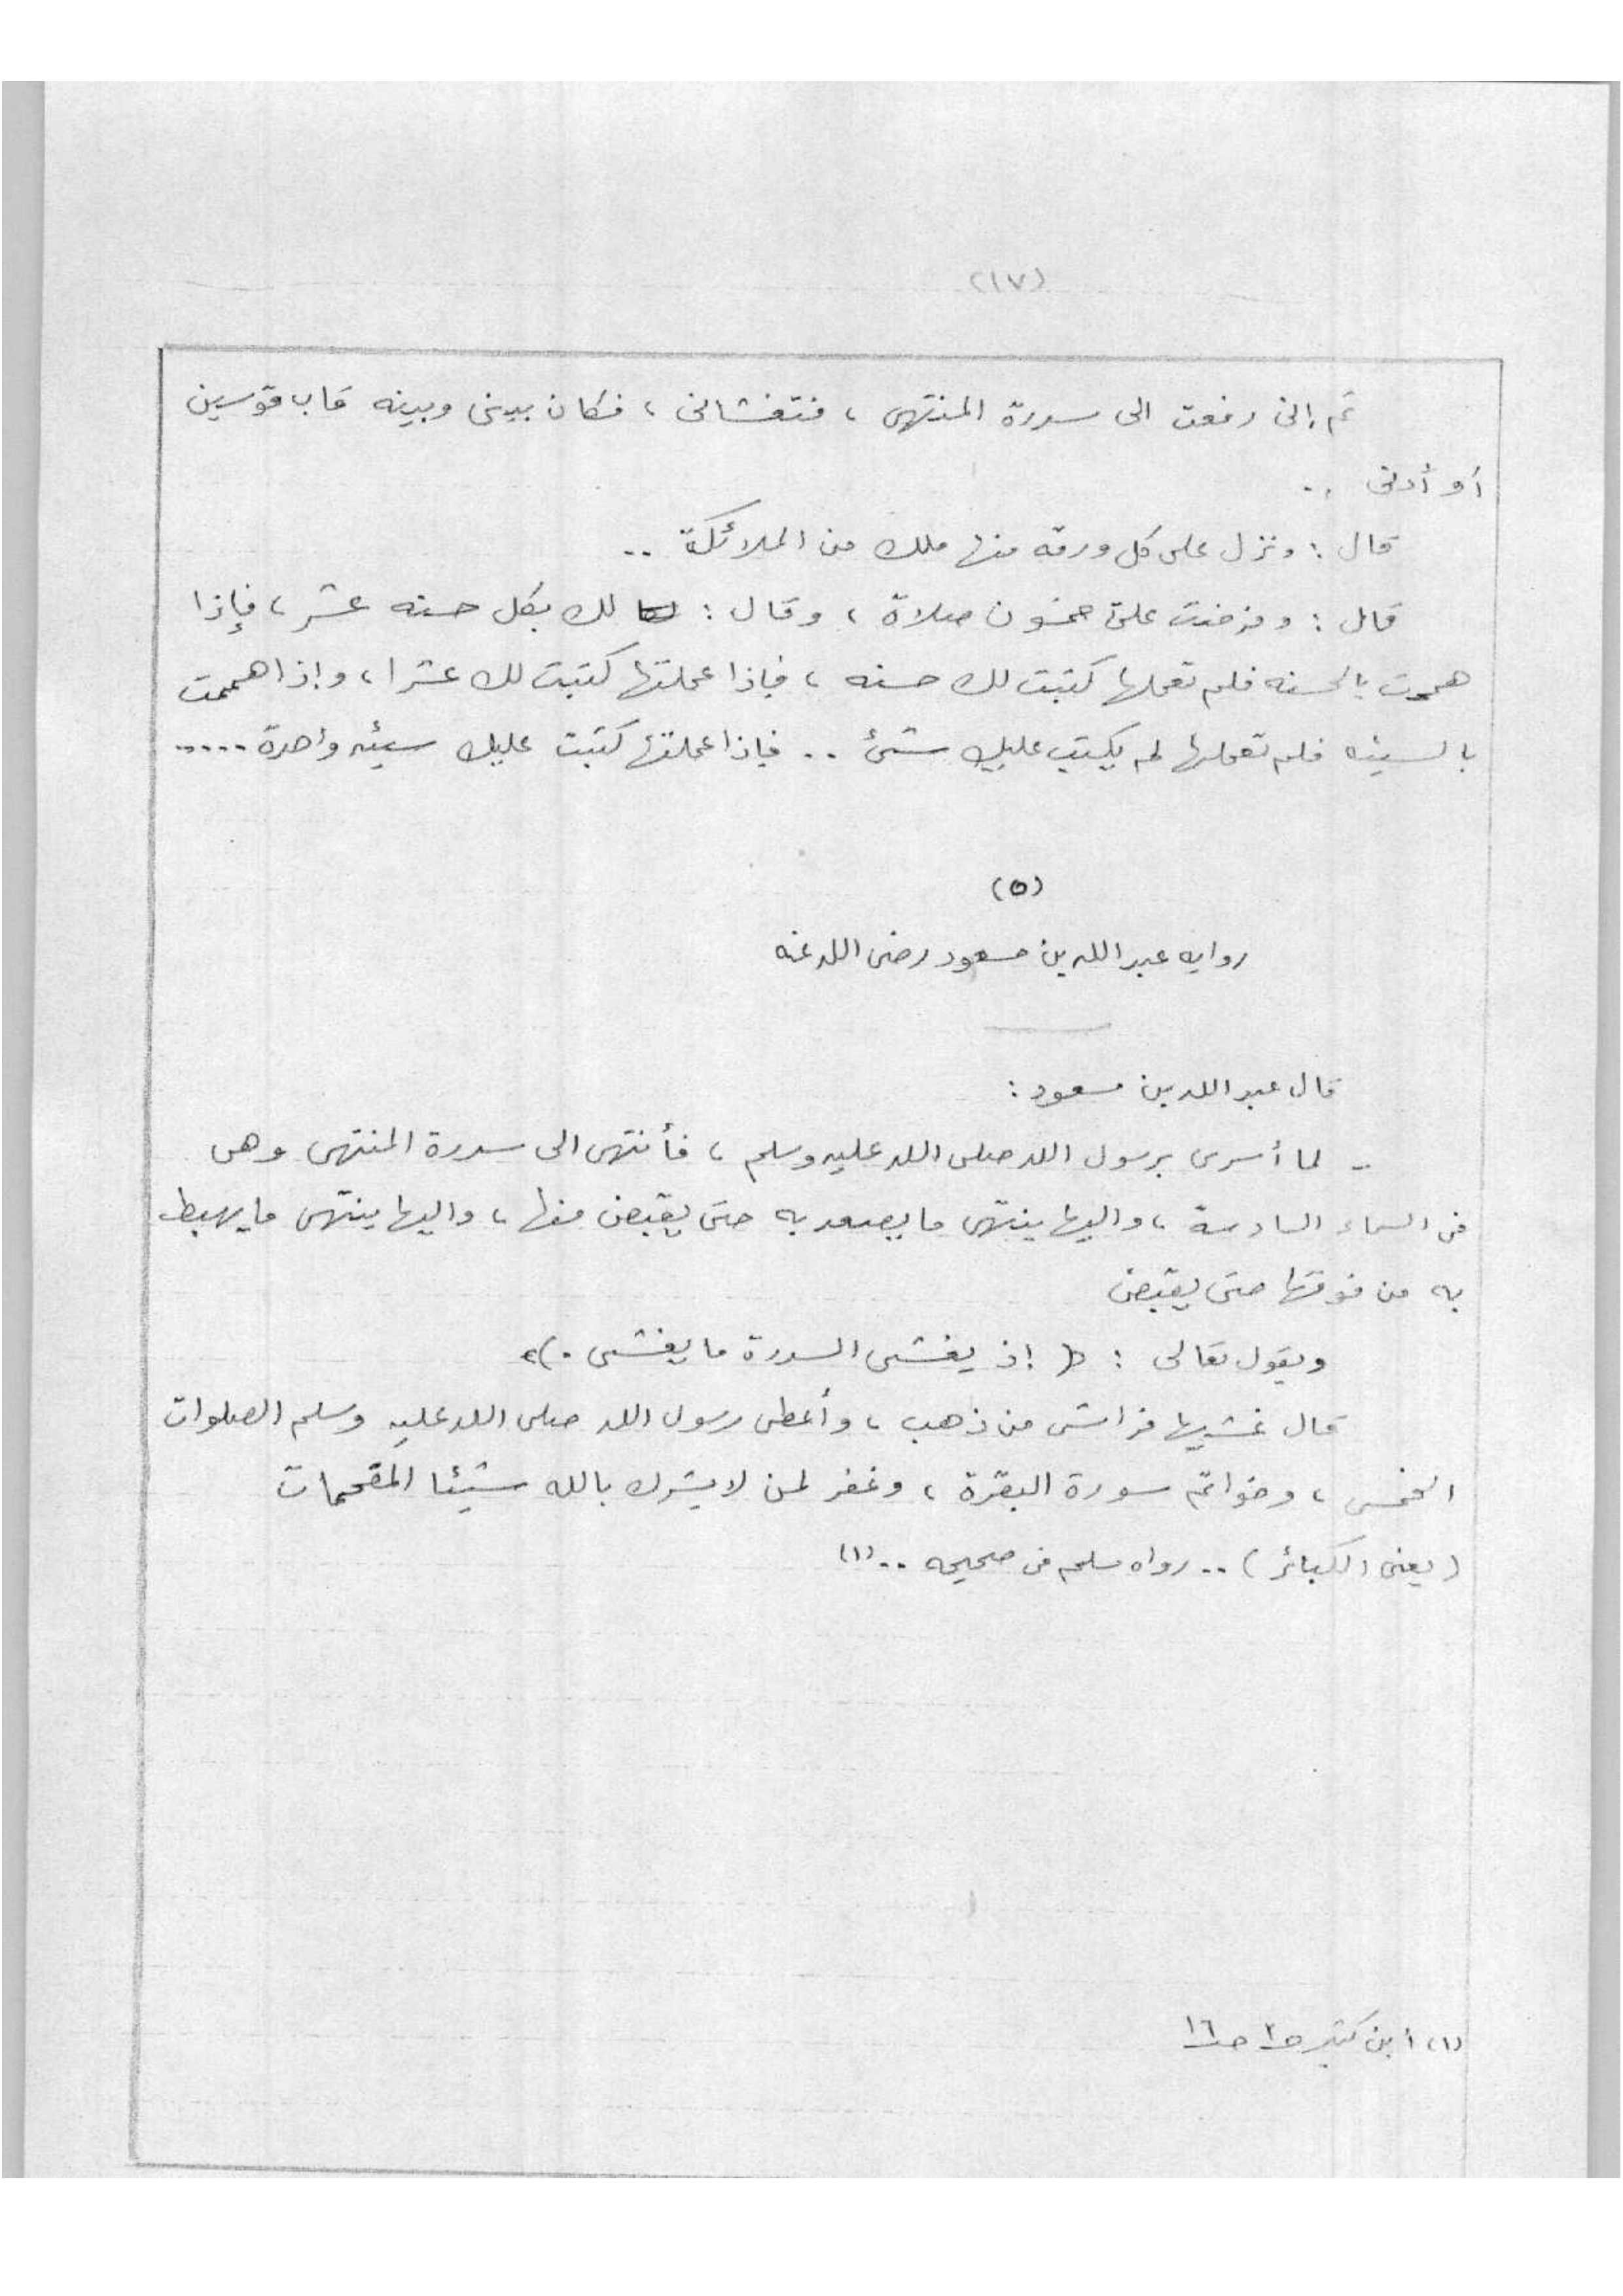 (١٧)
ثم إنى رفعت الى سدرة المنتهى ، فتغشانى ، فكان بينى وبينه قاب قوسين
أو أدنى ..
قال : ونزل على كل ورقه منها ملك من الملائكة ..
قال : وفرضت علىّ خمسون صلاة ، وقال : لك بكل حسنه عشر ، فإذا
هممت بالحسنه فلم تعملها كتبت لك حسنه ، فإذا عملتها كتبت لك عشرا ، وإذا هممت
بالسيئه فلم تعملها لم يكتب عليك شئ .. فإذا عملتها كتبت عليك سيئه واحدة .....
(٥)
روايه عبد الله بن مسعود رضى الله عنه
قال عبد الله بن مسعود :
.. لما أسرى برسول الله صلى الله عليه وسلم ، فأنتهى الى سدرة المنتهى وهى
فى السماء السادسة ، واليها ينتهى ما يصعد به حتى يقبض منها ، واليها ينتهى ما يهبط
به من فوقها حتى يقبض
ويقول تعالى : « إذ يغشى السدرة ما يغشى . »
قال غشيها فراش من ذهب ، وأعطى رسول الله صلى الله عليه وسلم الصلوات
الخمس ، وخواتم سورة البقرة ، وغفر لمن لا يشرك بالله شيئا المقحمات
( يعنى الكبائر ) .. رواه مسلم فى صحيحه .. (١)
(١) أبن كثير ص١٦